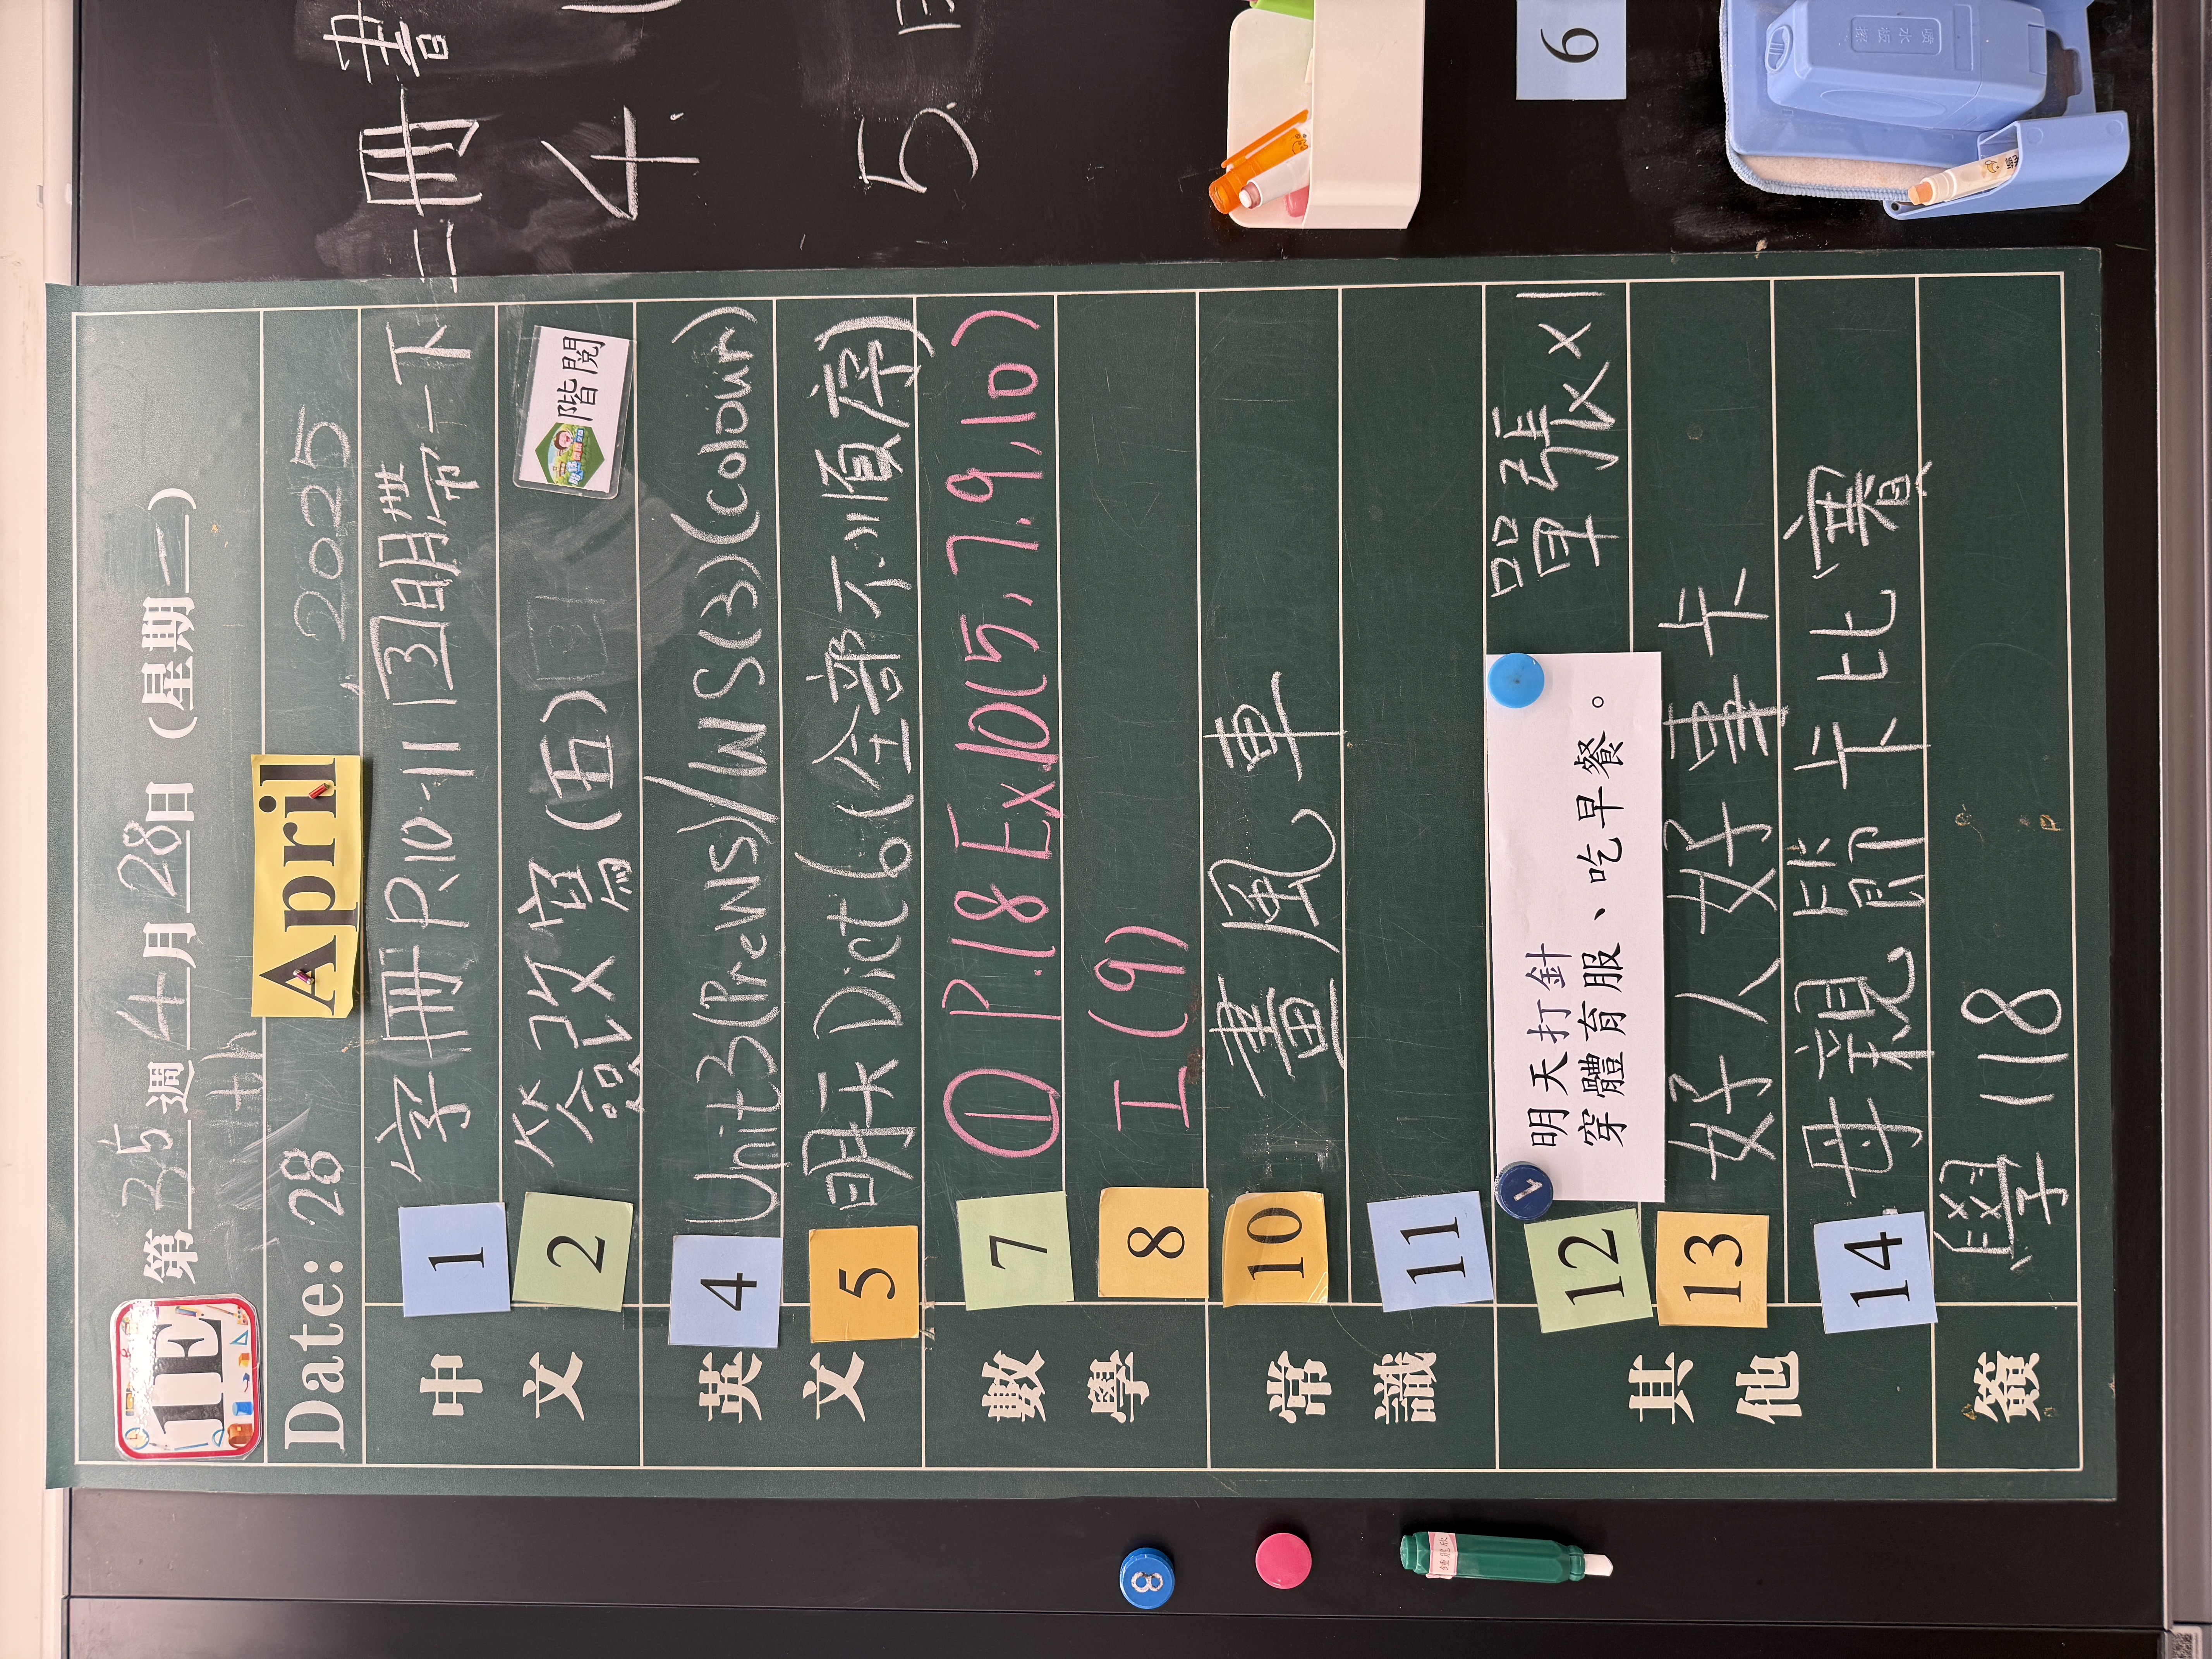 1E
第35週 4月28日 (星期一)
Date: 28th April, 2025
中文
1 字冊P.10-11 3 明帶一下二冊書
2 簽改窩(五) 階閱
英文
4 Unit3(PreWS)/WS(3)(colour)
5 明天Dict 6(全部不順序)
數學
7 ① P.18 Ex.10(5,7,9,10)
8 工(9)
常識
10 畫風車
11
其他
12 明天打針
穿體育服、吃早餐。
單張x1
13 好人好事卡
14 母親節卡比賽
簽
學118
4.
5.
6
8
1